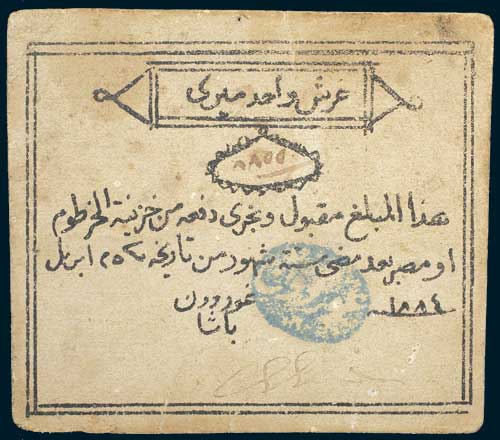 غرش واحد ميرى
هذا المبلغ مقبول وتجرى دفعه من خزينة الخرطوم
او مصر بعد مضى ستة شهور من تاريخه ٢٥ ابريل
١٨٨٤ غوردون
باشا